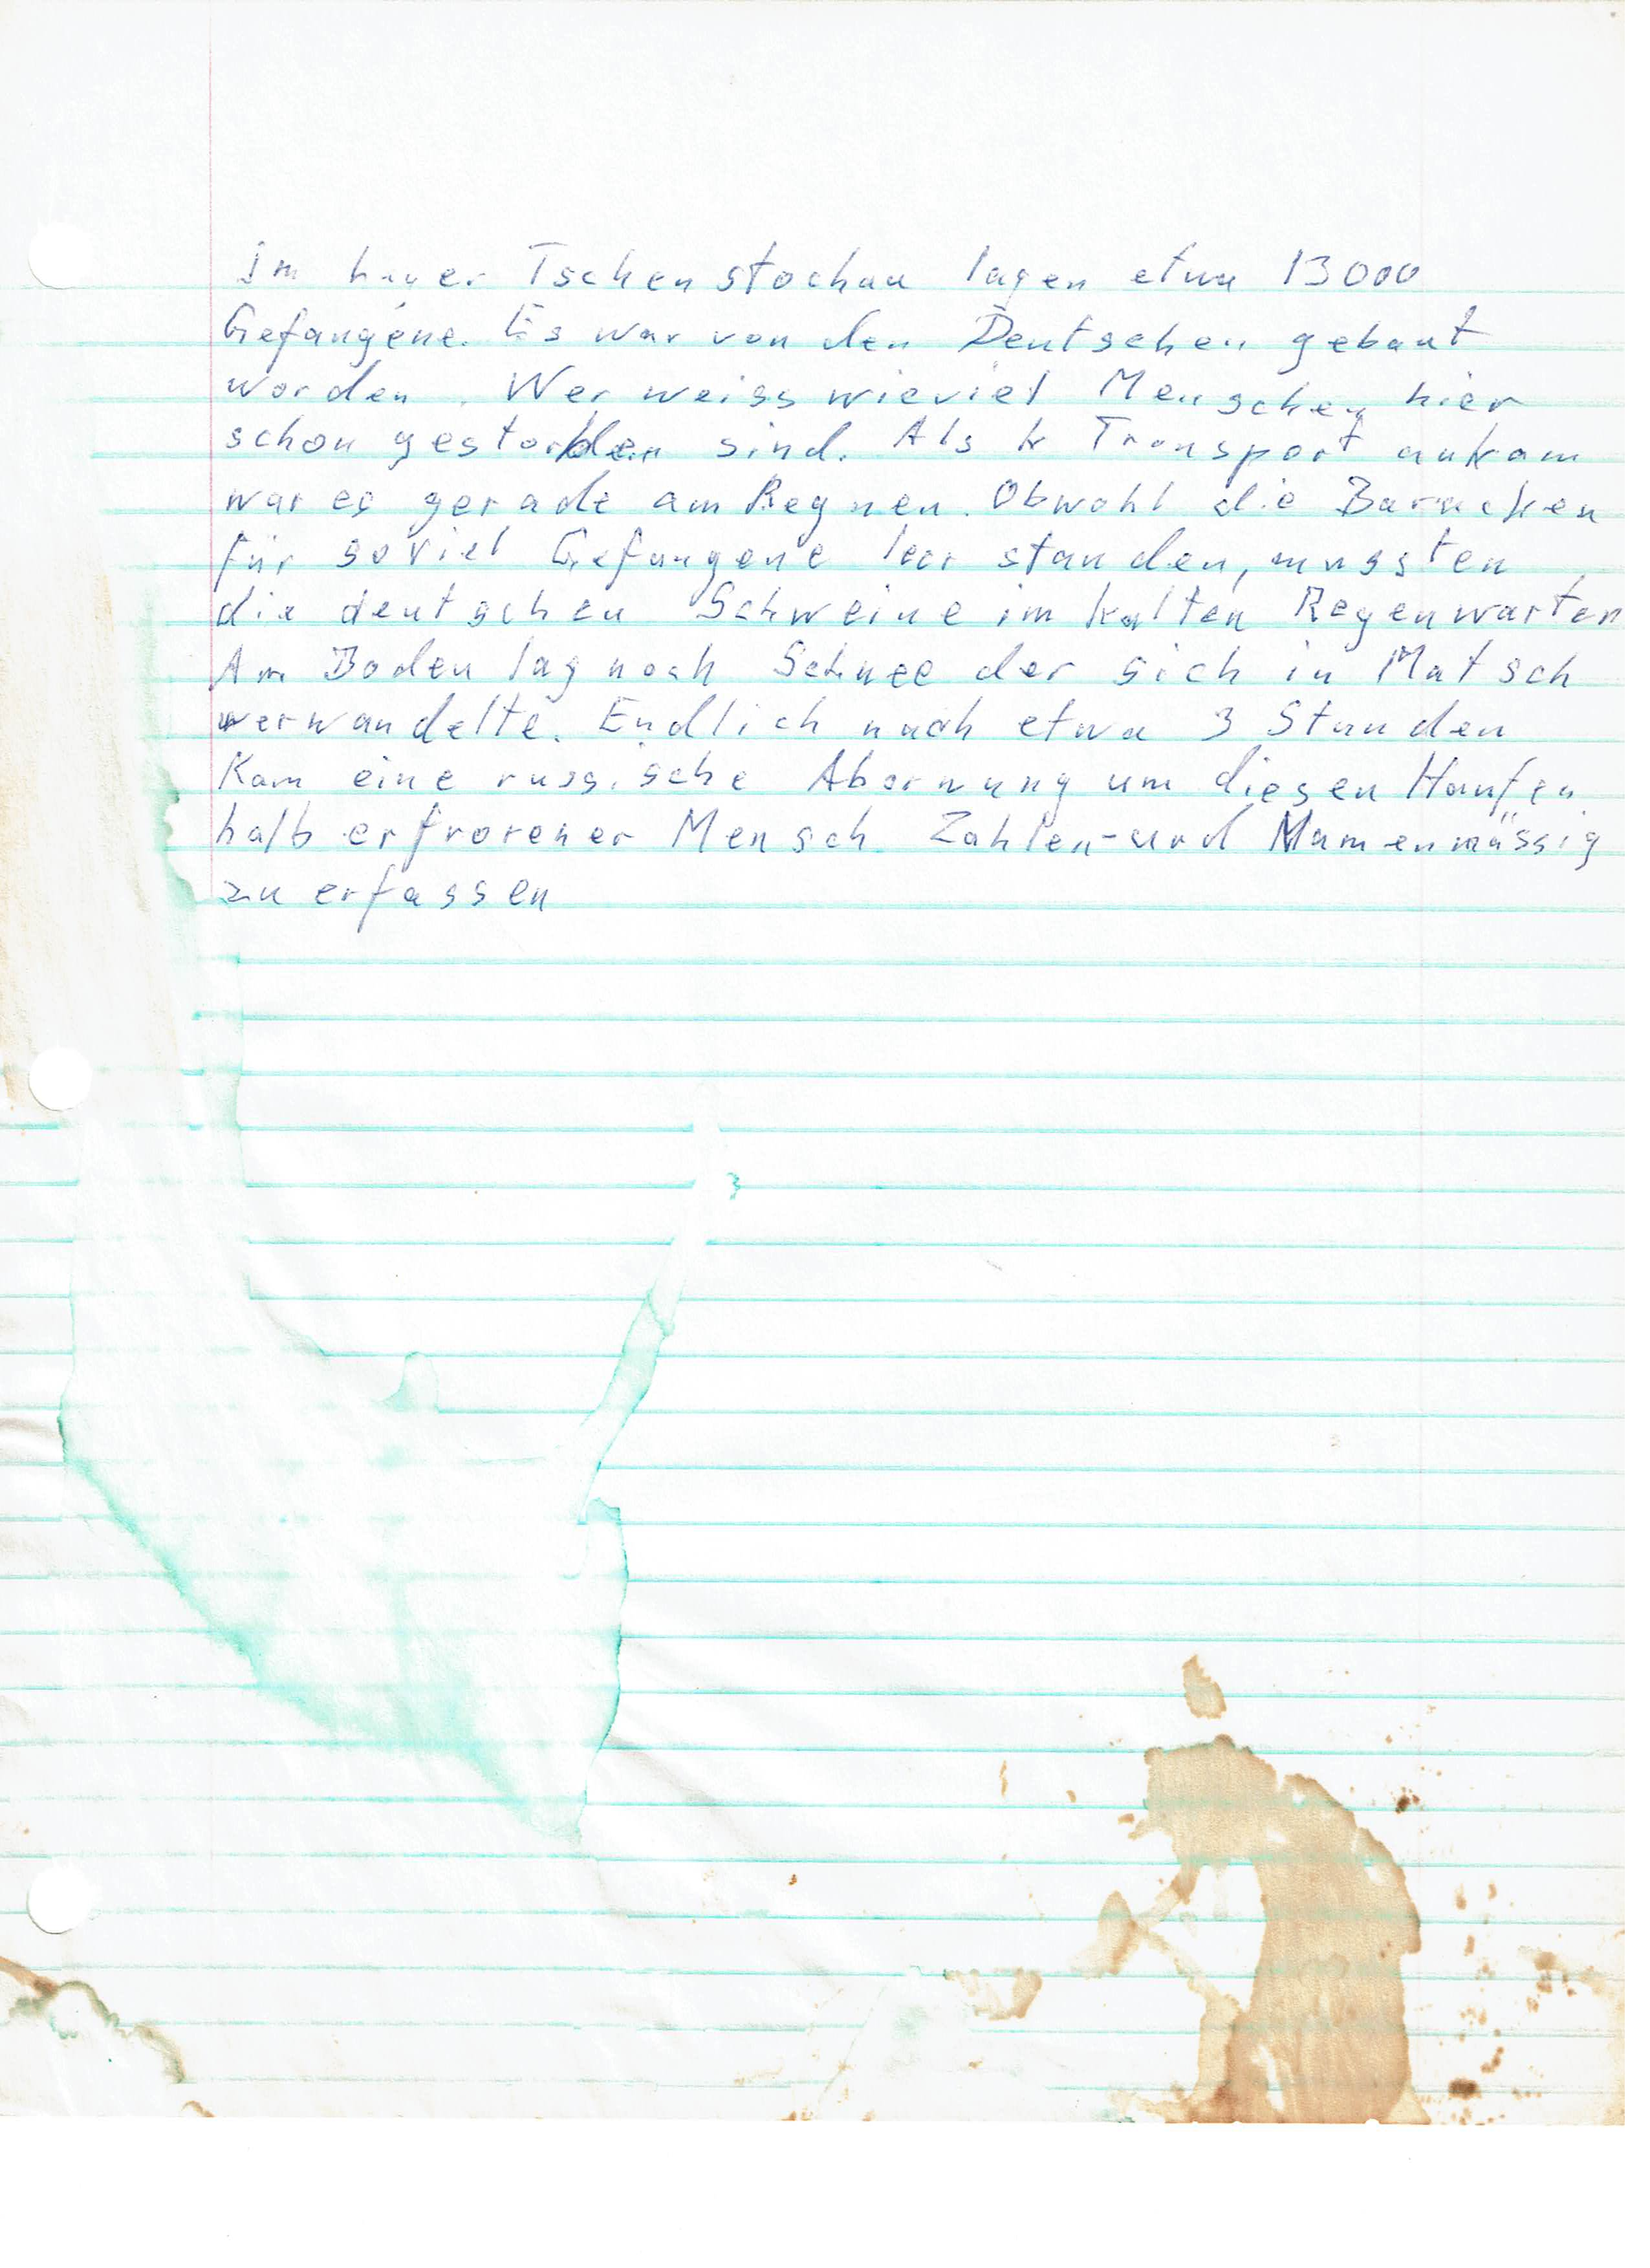 Im Lager Tschenstochau lagen etwa 13000
Gefangene. Es war von den Deutschen gebaut
worden. Wer weiss wieviel Menschen hier
schon gestorben sind. Als Transport ankam
war es gerade am Regnen. Obwohl die Baracken
für soviel Gefangene leer standen, mussten
die deutschen Schweine im kalten Regen warten
Am Boden lag noch Schnee der sich in Matsch
verwandelte. Endlich nach etwa 3 Stunden
Kam eine russische um diesen Haufen
halb erfrorener Mensch Zahlen-und Namenmässig
zu erfassen